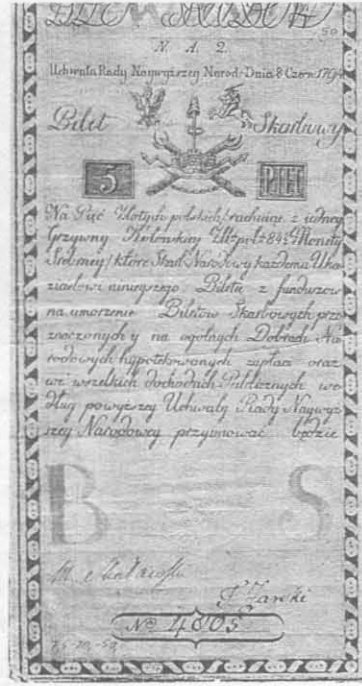 N. A. 2.
Uchwała Rady Naywyzszey Narod: Dnia 8 Czerw. 1794
Bilet Skarbowy
5 PIĘC
Na Pięć Złotych polskich, rachuiąc z iedney
Grzywny Kolońskiey Złt: pol: 84½ Monety
Srebrney, które Skarb Narodowy każdemu Uka-
zicielowi ninieyszego Biletu z funduszow
na umorzenie Biletow Skarbowych prze-
znaczonych y na ogólnych Dobrach Na-
rodowych hypotekowanych zapłaci oraz
we wszelkich dochodach Publicznych we-
dług powyższey Uchwały Rady Naywyż-
szey Narodowey przyimować będzie
B S
F. Zarski
No 4805